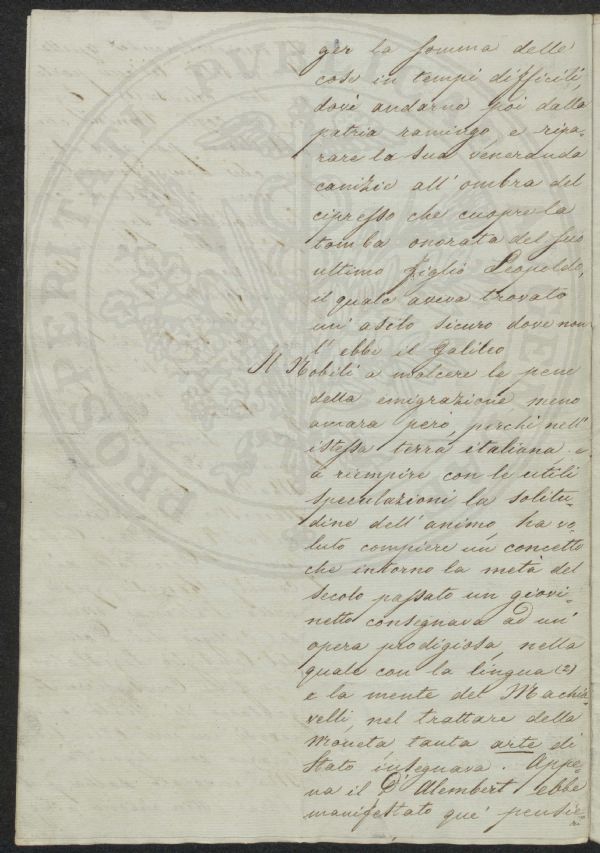 ger la somma delle
cose in tempi difficili,
dovè andarne poi dalla
patria ramingo e ripa-
rare la sua veneranda
canizie all'ombra del
cipresso che cuopre la
tomba onorata del suo
ultimo figlio Leopoldo,
il quale aveva trovato
un'asilo sicuro dove non
l'ebbe il Galileo
Il Nobili a molcere le pene
della emigrazione meno
amara però, perchè nell'
istessa terra italiana e
a riempire con le utili
speculazioni la solitu-
dine dell'animo, ha vo-
luto compiere un concetto
che intorno la metà del
secolo passato un giovi-
netto consegnava ad un'
opera prodigiosa, nella
quale con la lingua (2)
e la mente del Machia-
velli, nel trattare della
Moneta, tanta arte di
Stato insegnava. Appe-
na il D'Alembert ebbe
manifestato que' pensie-
ri
PROSPERITATI PUBLICAE